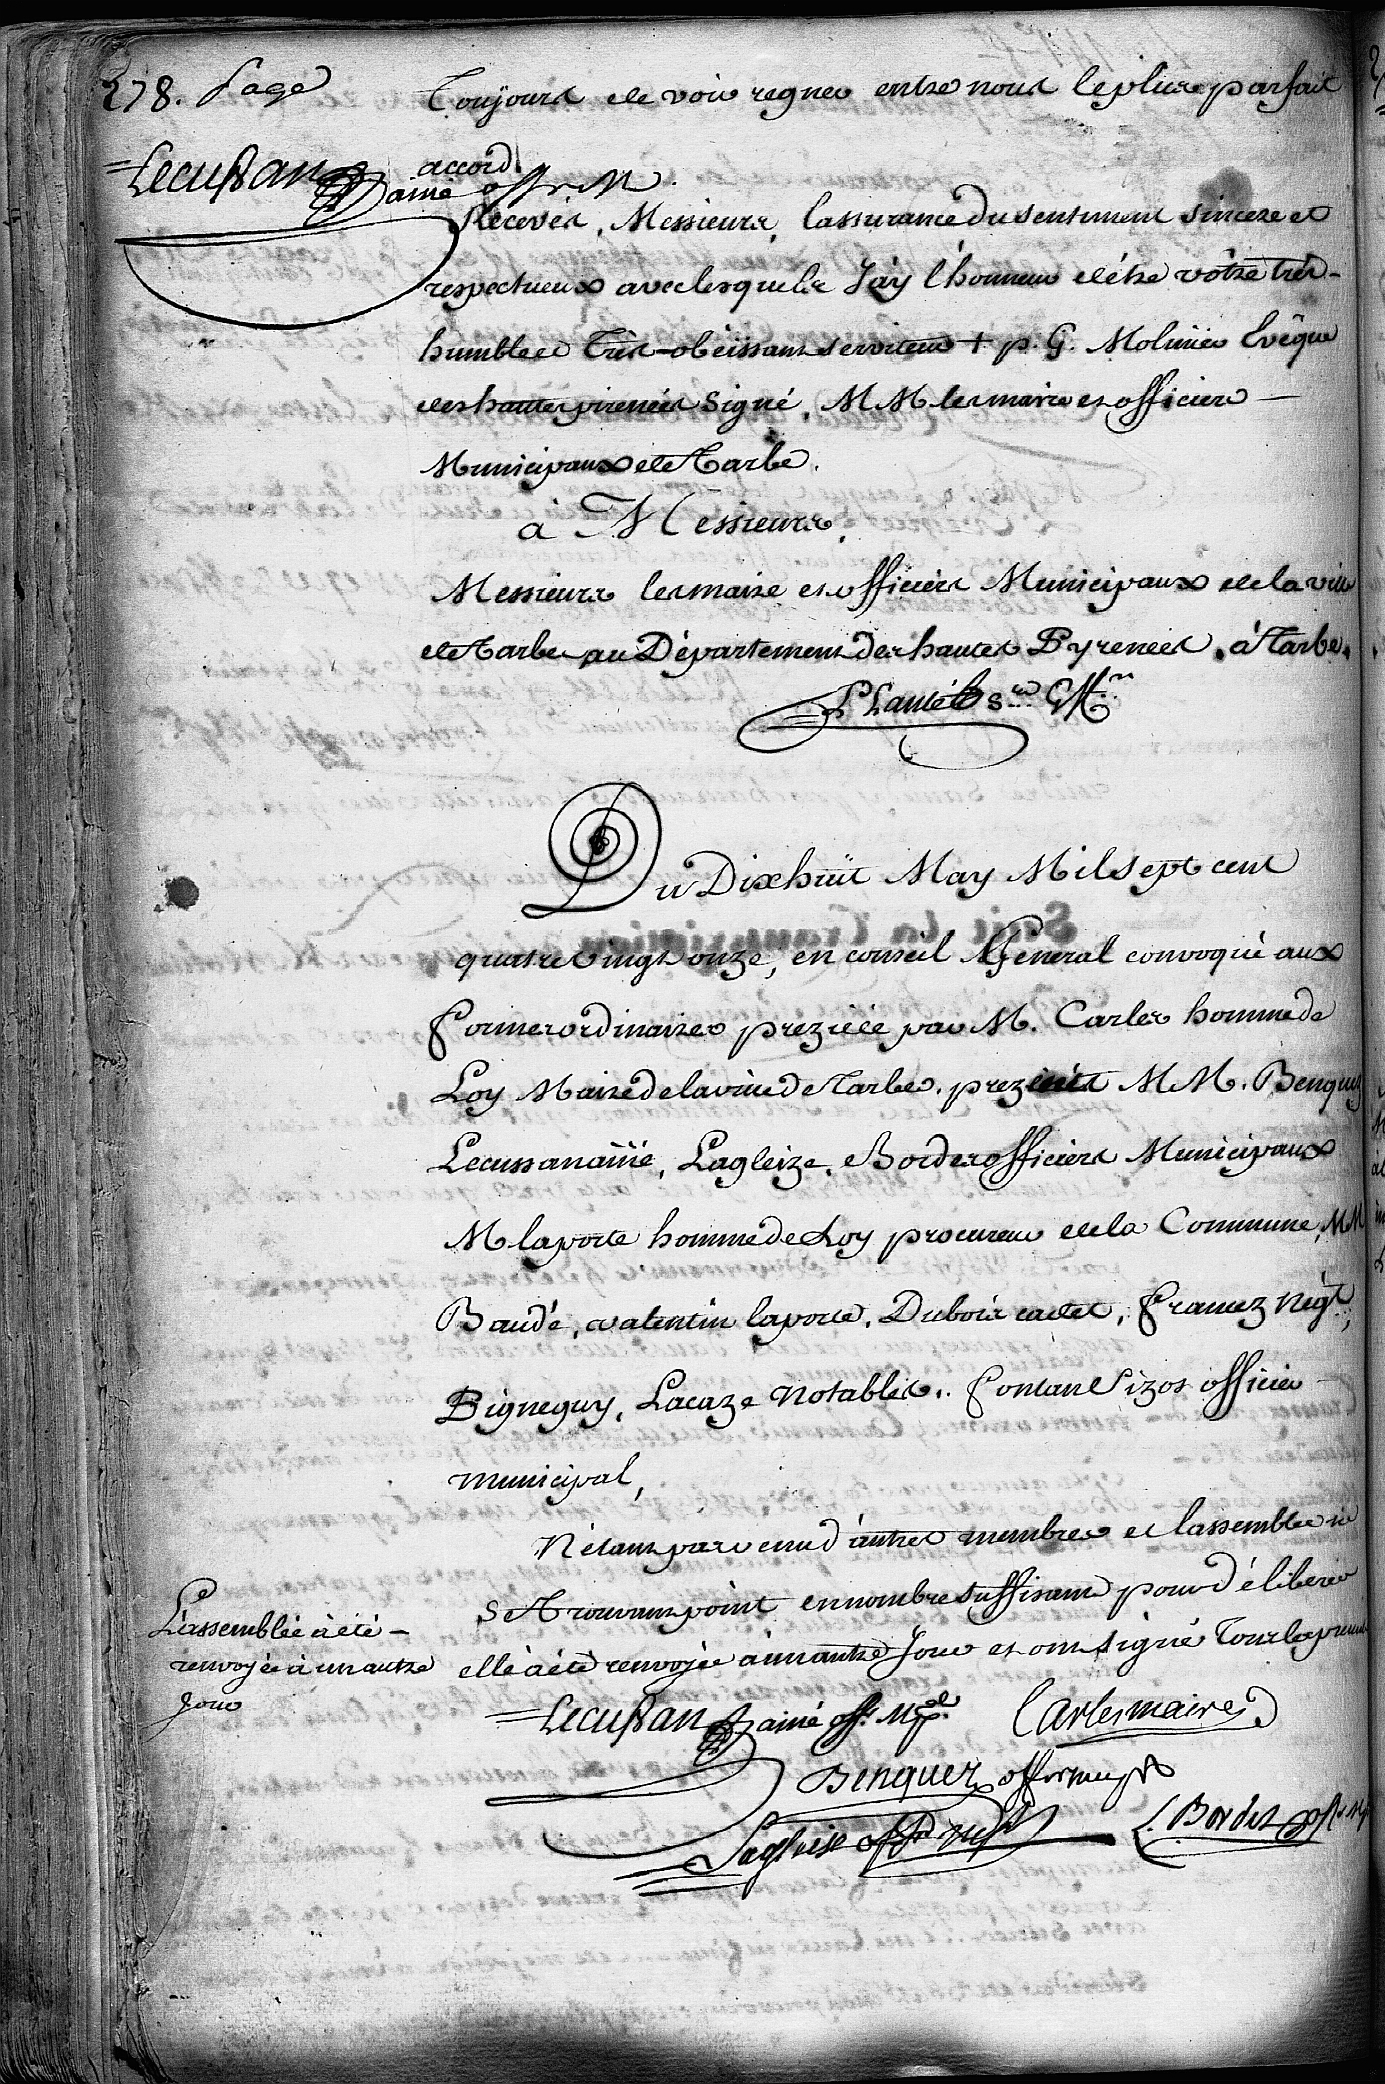 278. Page
Toujours de voir regner entre nous le plus parfait
accord.
=Lecussan ainé offr M
Recevés, Messieurs, lassurance du sentiment sincere et
respectueux avec lesquels Jáy l'honneur d'étre vôtre trés-
humble et Trés-obeissant serviteur + p. G. Molinier Evêque
des hautes pirenées Signé, MM les maire et officiers —
Municipaux de Tarbe.
à Messieurs,
Messieurs les maire et officiers Municipaux de la ville
de Tarbe au Département des hautes Pyrenées, á Tarbe.
Lanté s.re G.M.
Du Dix huit May Mil sept cent
quatre vingt onze, en conseil General convoqué aux
formes ordinaires prezidé par M. Carles homme de
Loy Maire de la ville de Tarbe. prezents MM. Benquez
Lecussan ainé, Lagleize, Bordes officiers Municipaux
M laporte homme de Loy procureur de la Commune, MM
Baudé, valentin laporte, Dubois cadet, francez négt,
Pigneguy, Lacaze Notables. fontan Pizos officier
municipal,
N'étant parvenu d'autres membres et lassemblée ne
se trouvant point en nombre suffisant pour déliberer
L'assemblée à été -
renvoyée à un autre
Jour
elle à été renvoyée à un autre Jour et ont signé Tous les
=Lecussan ainé offr. Mpal. Carles maire
Benquez offr mup
Lagleise offr mpl L. Bordes offr. M